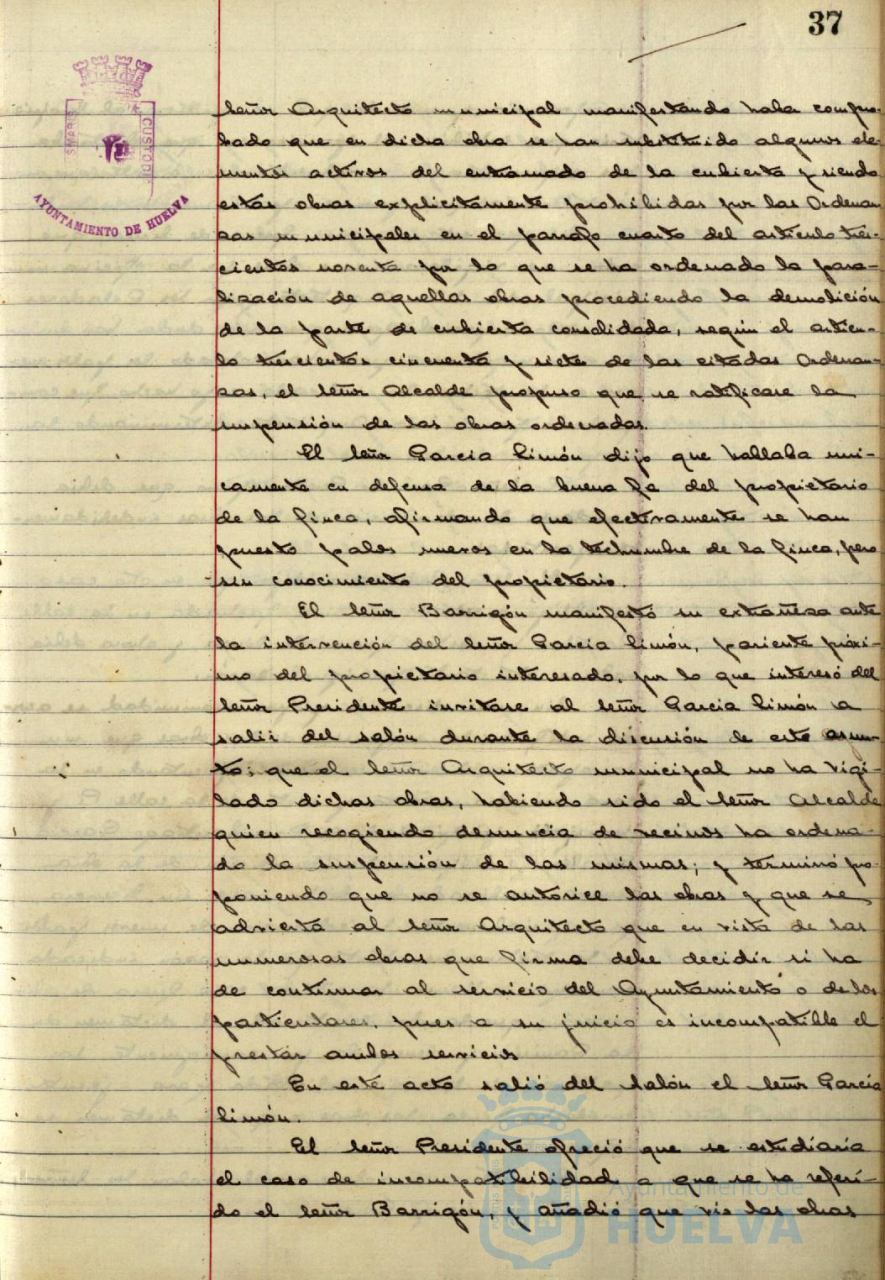 37
Señor Arquitecto municipal manifestando haba compro-
bado que en dicha obra se han substituido algunos ele-
mentos activos del entramado de la cubierta y siendo
estas obras explicitamente prohibidas por las Ordenan-
zas municipales en el parrafo cuarto del articulo tres-
cientos noventa por lo que se ha ordenado la para-
lización de aquellas obras procediendo la demolición
de la parte de cubierta consolidada, según el articu-
lo trescientos cincuenta y siete de las citadas Ordenan-
zas, el señor Alcalde propuso que se ratificase la
suspensión de las obras ordenadas.
El señor García Limón dijo que hablaba uni-
camente en defensa de la buena fe del propietario
de la finca, afirmando que efectivamente se han
puesto palos nuevos en la techumbre de la finca, pero
sin conocimiento del propietario.
El señor Barrigón manifestó su extrañeza ante
la intervención del señor García Limón, pariente próxi-
mo del propietario interesado, por lo que interesó del
señor Presidente invitase al señor García Limón a
salir del salón durante la discusión de este asun-
to; que el señor Arquitecto municipal no ha vigi-
lado dichas obras, habiendo sido el señor Alcalde
quien recogiendo denuncia de vecinos ha ordena-
do la suspensión de las mismas; y terminó pro-
poniendo que no se autorice las obras y que se
advierta al señor Arquitecto que en vista de las
numerosas obras que firma debe decidir si ha
de continuar al servicio del Ayuntamiento o de los
particulares, pues a su juicio es incompatible el
prestar ambos servicios
En este acto salió del salón el señor García
Limón.
El señor Presidente ofreció que se estudiaría
el caso de incompatibilidad a que se ha referi-
do el señor Barrigón, y añadió que vio las obras
SMARIS
CUSTODI
AYUNTAMIENTO DE HUELVA
Ayuntamiento de
HUELVA